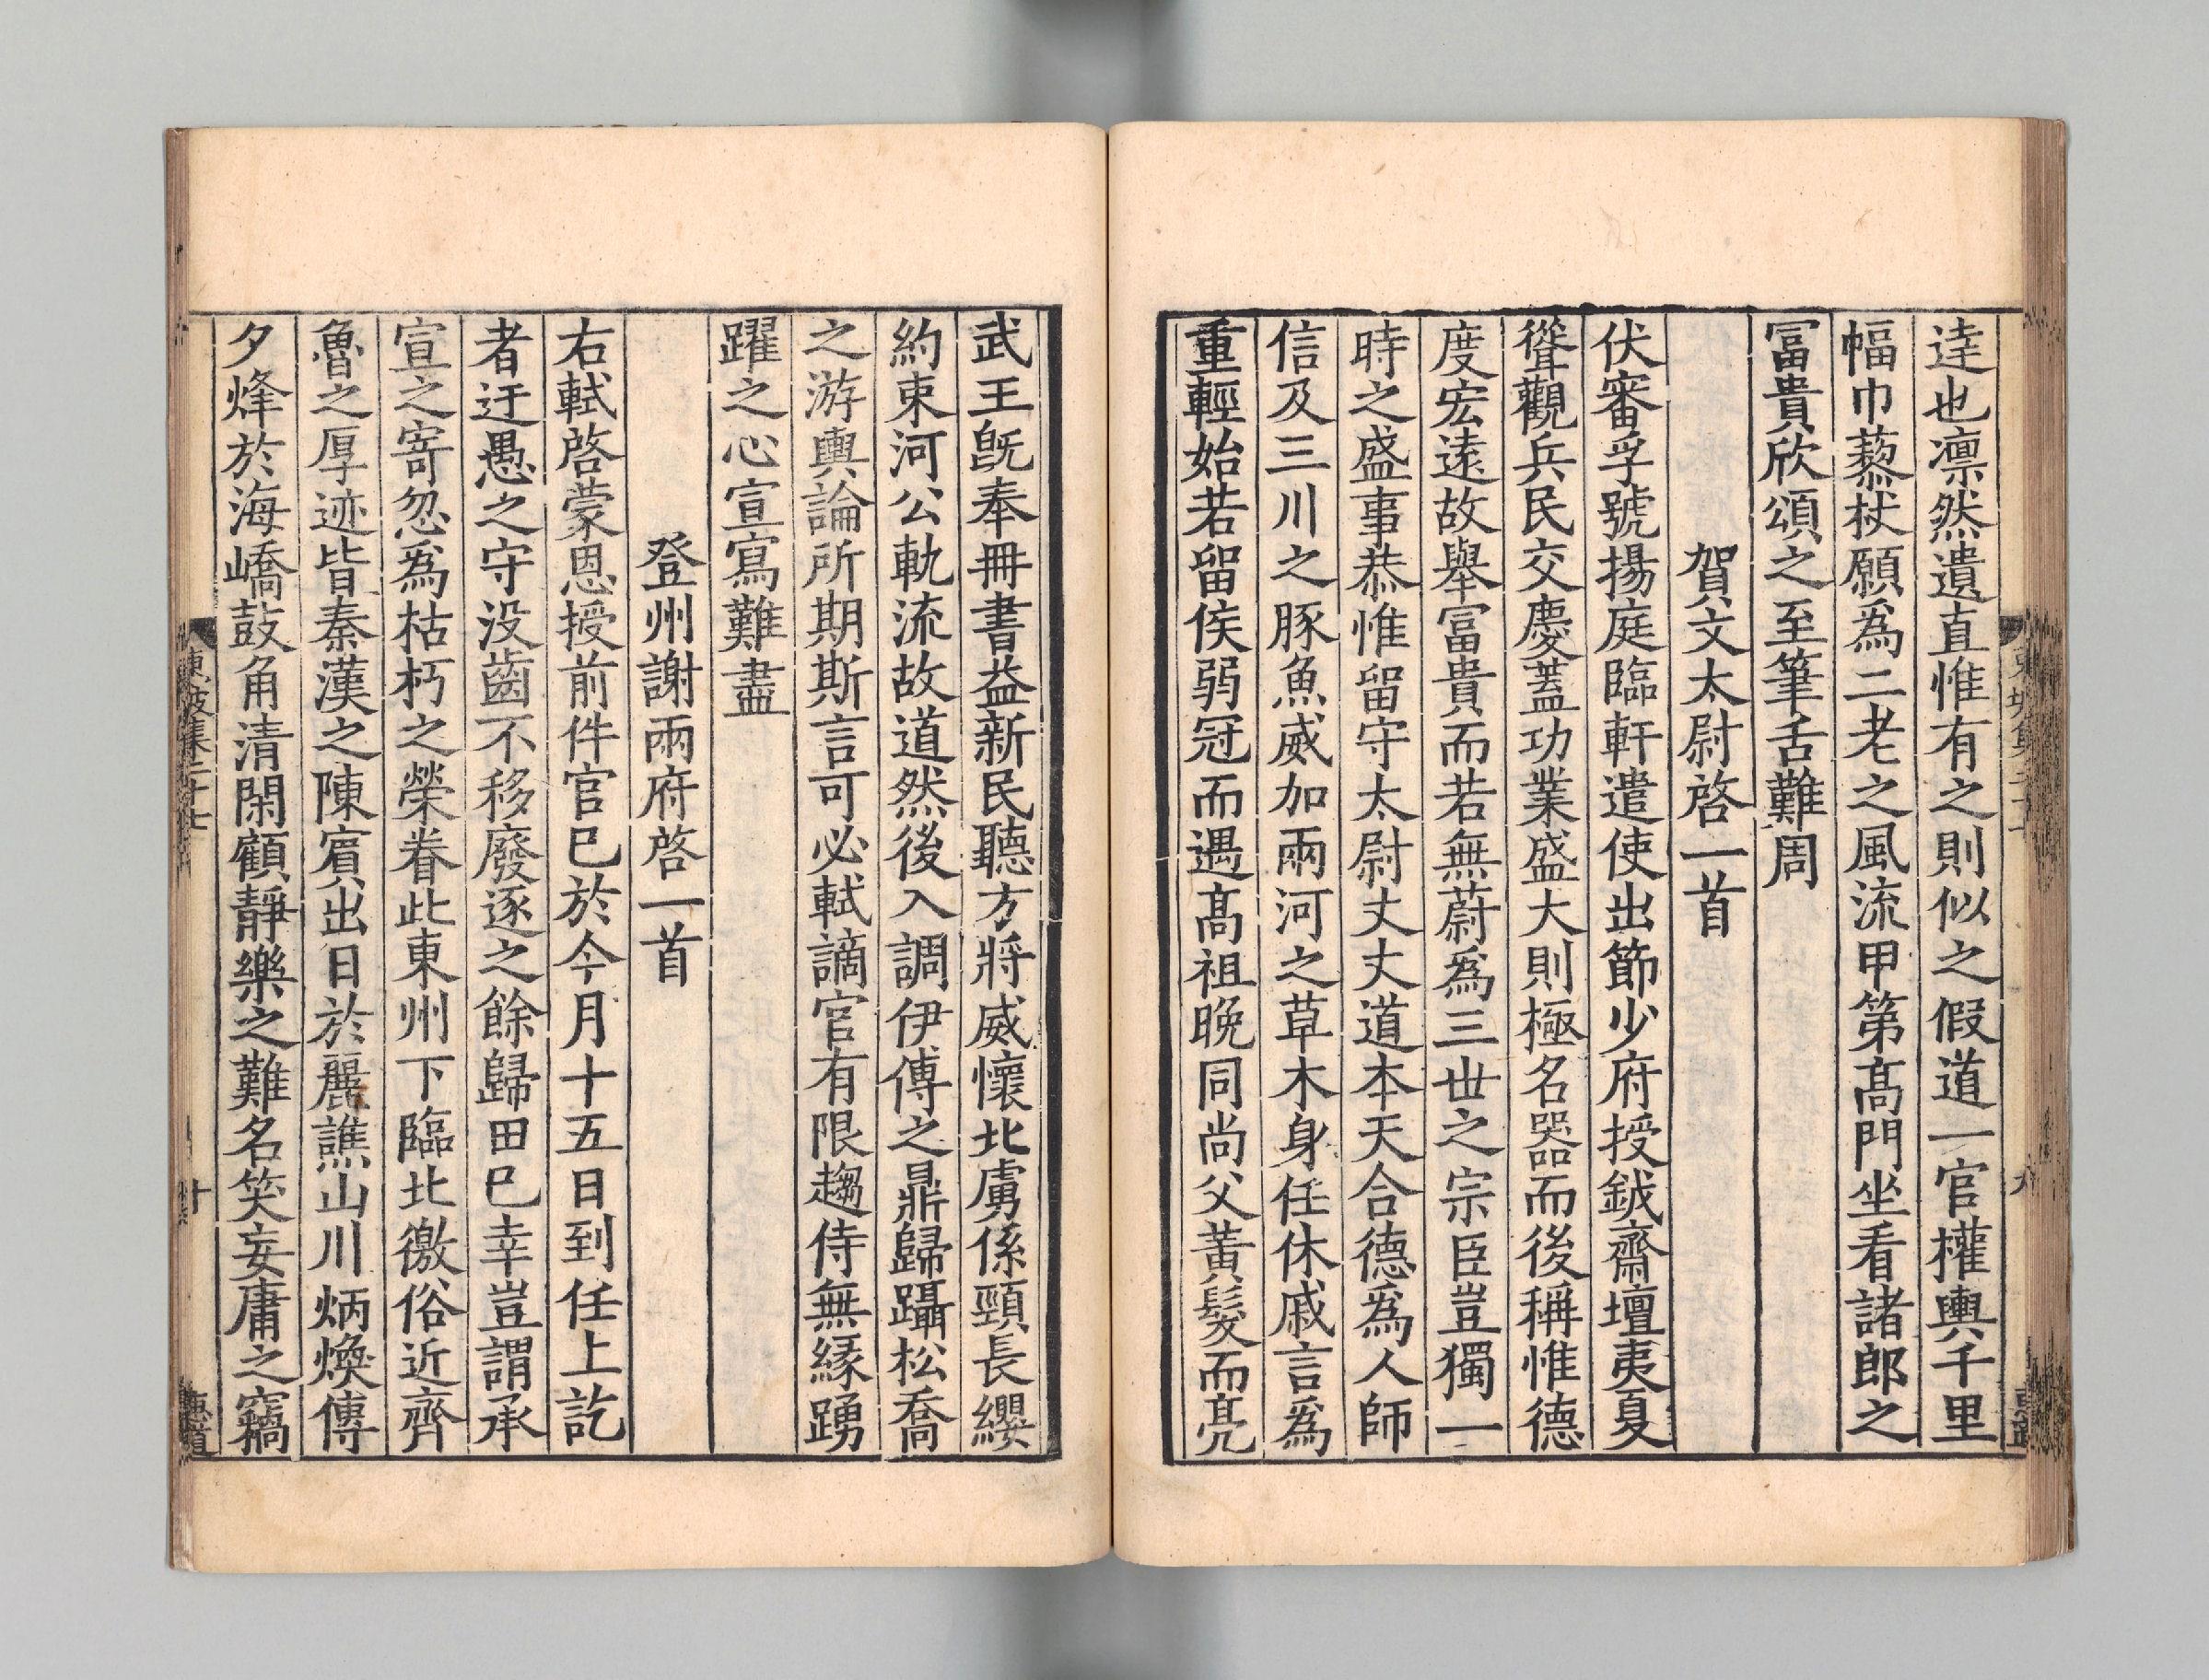 達也凛然遺直惟有之則似之假道一官權輿千里
幅巾藜杖願爲二老之風流甲第髙門坐看諸郎之
冨貴欣頌之至筆舌難周
賀文太尉啓一首
伏審孚號揚庭臨軒遣使出節少府授鉞齋壇夷夏
聳觀兵民交慶蓋功業盛大則極名器而後稱惟德
度宏遠故舉富貴而若無蔚爲三世之宗臣豈獨一
時之盛事恭惟留守太尉丈丈道本天合德爲人師
信及三川之豚魚威加兩河之草木身任休戚言爲
重輕始若留侯弱冠而遇髙祖晚同尚父黃髮而亮
武王旣奉冊書益新民聽方將威懷北虜係頸長纓
約束河公軌流故道然後入調伊傅之鼎歸躡松喬
之游輿論所期斯言可必軾謫官有限趨侍無緣踴
躍之心宣寫難盡
登州謝兩府啓一首
右軾啓蒙恩授前件官已於今月十五日到任上訖
者迂愚之守没齒不移廢逐之餘歸田已幸豈謂承
宣之寄忽爲枯朽之榮眷此東州下臨北徼俗近齊
魯之厚迹皆秦漢之陳賔出日於麗譙山川炳煥傳
夕烽於海嶠鼓角清閑顧靜樂之難名笑妄庸之竊
東坡集二十七
十